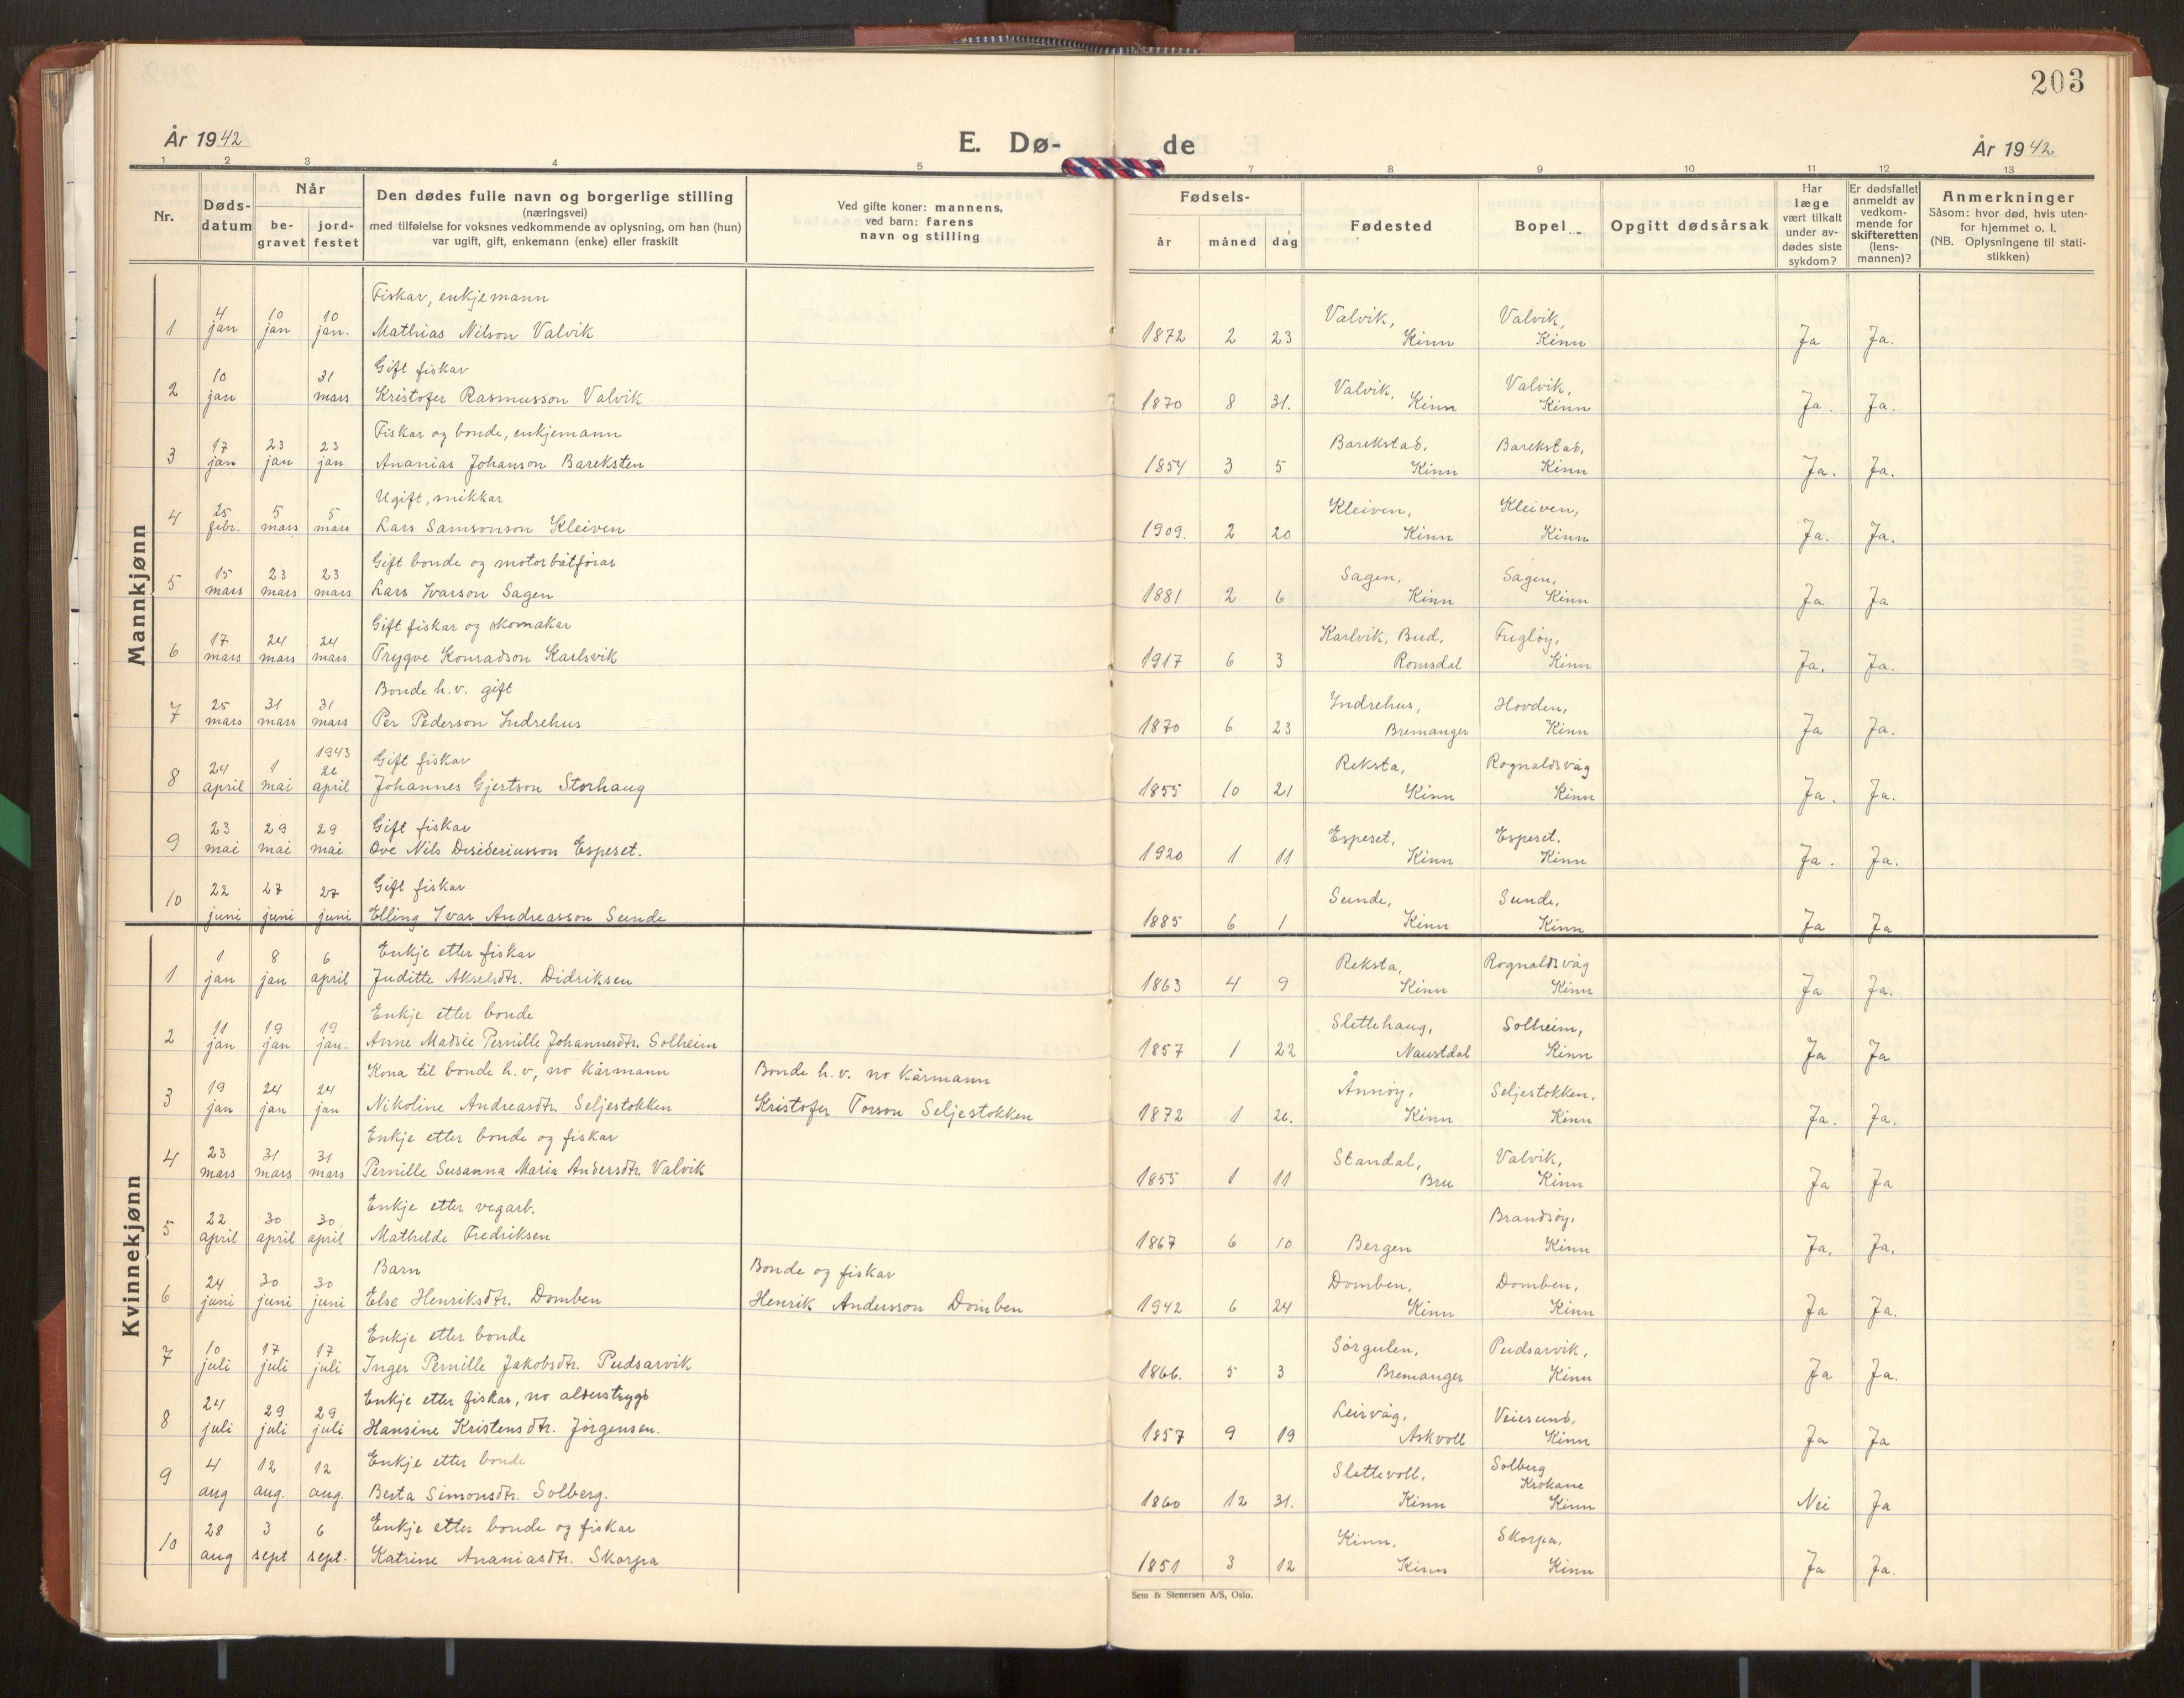 203
År 1942
E. Dø-
de
År 1942
1 2 3 4 5 7 8 9 10 11 12 13
Nr.
Døds-
datum
Når
be-
gravet
jord-
festet
Den dødes fulle navn og borgerlige stilling
(næringsvei)
med tilføielse for voksnes vedkommende av oplysning, om han (hun)
var ugift, gift, enkemann (enke) eller fraskilt
Ved gifte koner: mannens,
ved barn: farens
navn og stilling
Fødsels-
år måned dag
Fødested
Bopel
Opgitt dødsårsak
Har
læge
vært tilkalt
under av-
dødes siste
sykdom?
Er dødsfallet
anmeldt av
vedkom-
mende for
skifteretten
(lens-
mannen)?
Anmerkninger
Såsom: hvor død, hvis uten-
for hjemmet o. l.
(NB. Oplysningene til stati-
stikken)
Mannkjønn
Fiskar, enkjemann
4 10 10 Valvik, Valvik,
1 jan jan jan. Mathias Nilson Valvik 1872 2 23 Kinn Kinn Ja Ja.
Gift fiskar
10 31 Valvik, Valvik,
2 jan mars Kristofer Rasmusson Valvik 1870 8 31. Kinn Kinn Ja. Ja.
Fiskar og bonde, enkjemann
17 23 23 Barekstad, Barekstad,
3 jan jan jan Ananias Johanson Bareksten 1854 3 5 Kinn Kinn Ja. Ja.
Ugift, snikkar
25 5 5 Kleiven, Kleiven,
4 febr. mars mars Lars Samsonson Kleiven 1909. 2 20 Kinn Kinn Ja. Ja.
Gift bonde og motorbåtførar
15 23 23 Sagen, Sagen,
5 mars mars mars Lars Ivarson Sagen 1881 2 6 Kinn Kinn Ja Ja
Gift fiskar og skomakar
17 24 24 Karlvik, Bud, Fugløy,
6 mars mars mars Trygve Konradson Karlsvik 1917 6 3 Romsdal Kinn Ja. Ja.
Bonde h.v. gift
25 31 31 Indrehus, Hovden,
7 mars mars mars Per Pederson Indrehus 1870 6 23 Bremanger Kinn Ja Ja.
1943
Gift fiskar
24 1 26 Reksta, Rognaldsvåg
8 april mai april Johannes Gjertson Storhaug 1855 10 21 Kinn Kinn Ja. Ja.
Gift fiskar
23 29 29 Espeset, Espeset.
9 mai mai mai Ove Nils Desideriusson Espeset. 1920 1 11 Kinn Kinn Ja. Ja.
Gift fiskar
22 27 27 Sunde, Sunde,
10 juni juni juni Elling Ivar Andreasson Sunde 1885 6 1 Kinn Kinn Ja Ja
Kvinnekjønn
Enkje etter fiskar
1 8 6 Reksta, Rognaldsvåg
1 jan jan april Juditte Akselsdtr. Didriksen 1863 4 9 Kinn Kinn Ja Ja.
Enkje etter bonde
11 19 19 Slettehaug, Solheim,
2 jan jan jan. Anne Madsie Pernille Johannesdtr. Solheim 1857 1 22 Naustdal Kinn Ja Ja
Kona til bonde h.v, no kårmann Bonde h.v. no kårmann
19 24 24 Ånnøy, Seljestokken,
3 jan jan jan Nikoline Andreasdtr. Seljestokken Kristofer Torson Seljestokken 1872 1 26. Kinn Kinn Ja. Ja.
Enkje etter bonde og fiskar
23 31 31 Standal, Valvik,
4 mars mars mars Pernille Susanna Maria Andersdtr. Valvik 1855 1 11 Bru Kinn Ja Ja
Enkje etter vegarb.
22 30 30 Brandsøy,
5 april april april Mathilde Fredriksen 1867 6 10 Bergen Kinn Ja. Ja.
Barn Bonde og fiskar
24 30 30 Domben, Domben,
6 juni juni juni Else Henriksdtr. Domben Henrik Andersson Domben 1942 6 24 Kinn Kinn Ja Ja.
Enkje etter bonde
10 17 17 Sørgulen, Pudsarvik,
7 juli juli juli Inger Pernille Jakobsdtr. Pudsarvik 1866. 5 3 Bremanger Kinn Ja Ja.
Enkje etter fiskar, no alderstrygd
24 29 29 Leirvåg, Veiesund,
8 juli juli juli Hansine Kristensdtr. Jørgensen. 1857 9 19 Askvoll Kinn Ja Ja
Enkje etter bonde
4 12 12 Slettevoll, Solberg
Krokane
9 aug aug. aug. Berta Simonsdtr. Solberg. 1860 12 31. Kinn Kinn Nei Ja
Enkje etter bonde og fiskar
28 3 6 Kinn, Skorpa,
10 aug sept sept. Katrine Ananiasdtr. Skorpa 1851 3 12 Kinn Kinn Ja Ja.
Sem & Stenersen A/S, Oslo.